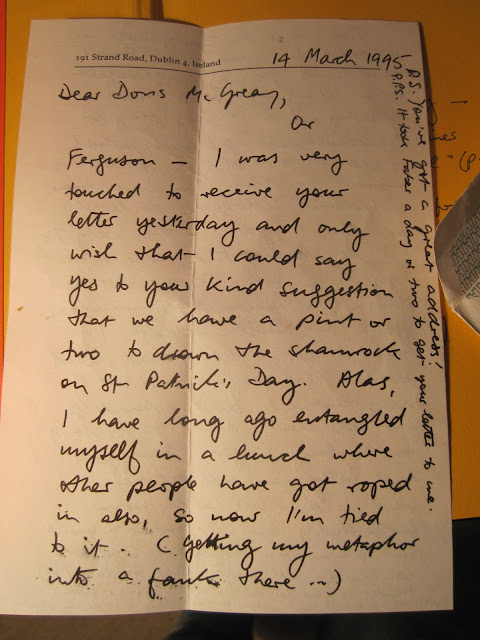 191 Strand Road, Dublin 4, Ireland
14 March 1995
Dear Doris McGreay,
Or
Ferguson – I was very
touched to receive your
letter yesterday and only
wish that I could say
yes to your kind suggestion
that we have a pint or
two to drown the shamrock
on St Patrick's Day. Alas,
I have long ago entangled
myself in a lunch where
other people have got roped
in also, so now I'm tied
to it. (Getting my metaphor
into a fank there ...)
P.S. You've got a great address!
P.P.S. It took Faber a day or two to get your letter to me.